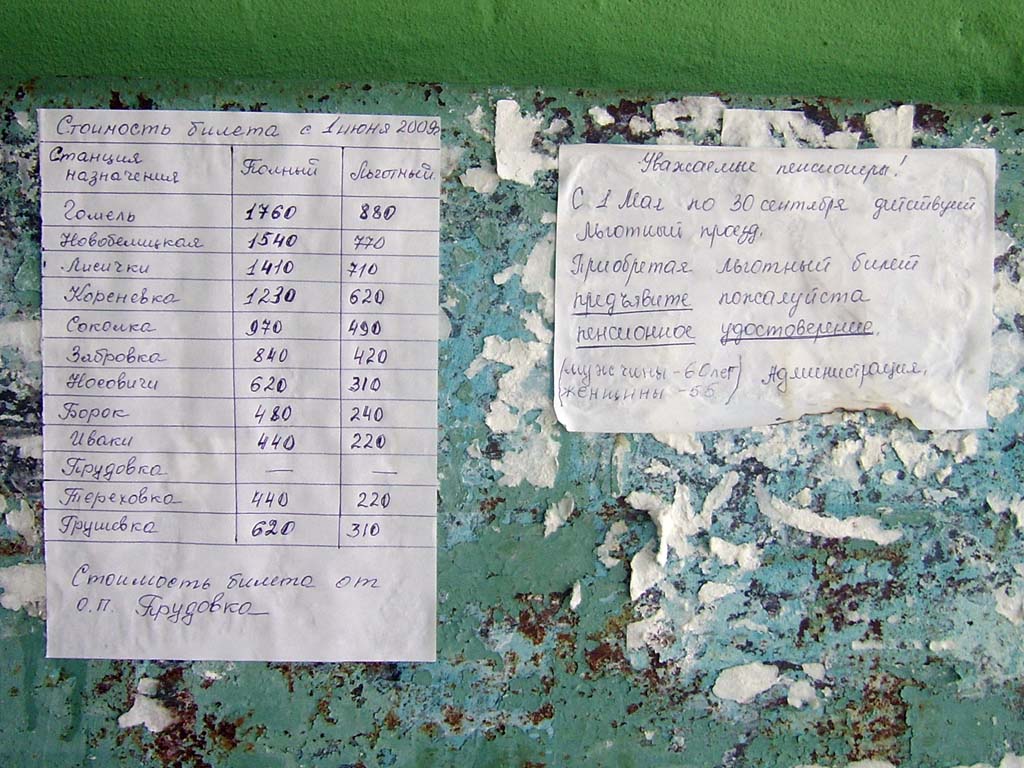 Стоимость билета с 1 июня 2009г
Станция назначения Полный Льготный
Гомель 1760 880
Новобелицкая 1540 770
Лисички 1410 710
Кореневка 1230 620
Соколка 970 490
Зябровка 840 420
Носовичи 620 310
Борок 480 240
Иваки 440 220
Прудовка — —
Тереховка 440 220
Грушевка 620 310
Стоимость билета от
о.п. Прудовка
Уважаемые пенсионеры!
С 1 Мая по 30 сентября действует
льготный проезд.
Приобретая льготный билет
предъявите пожалуйста
пенсионное удостоверение.
(мужчины - 60 лет) Администрация.
женщины - 55